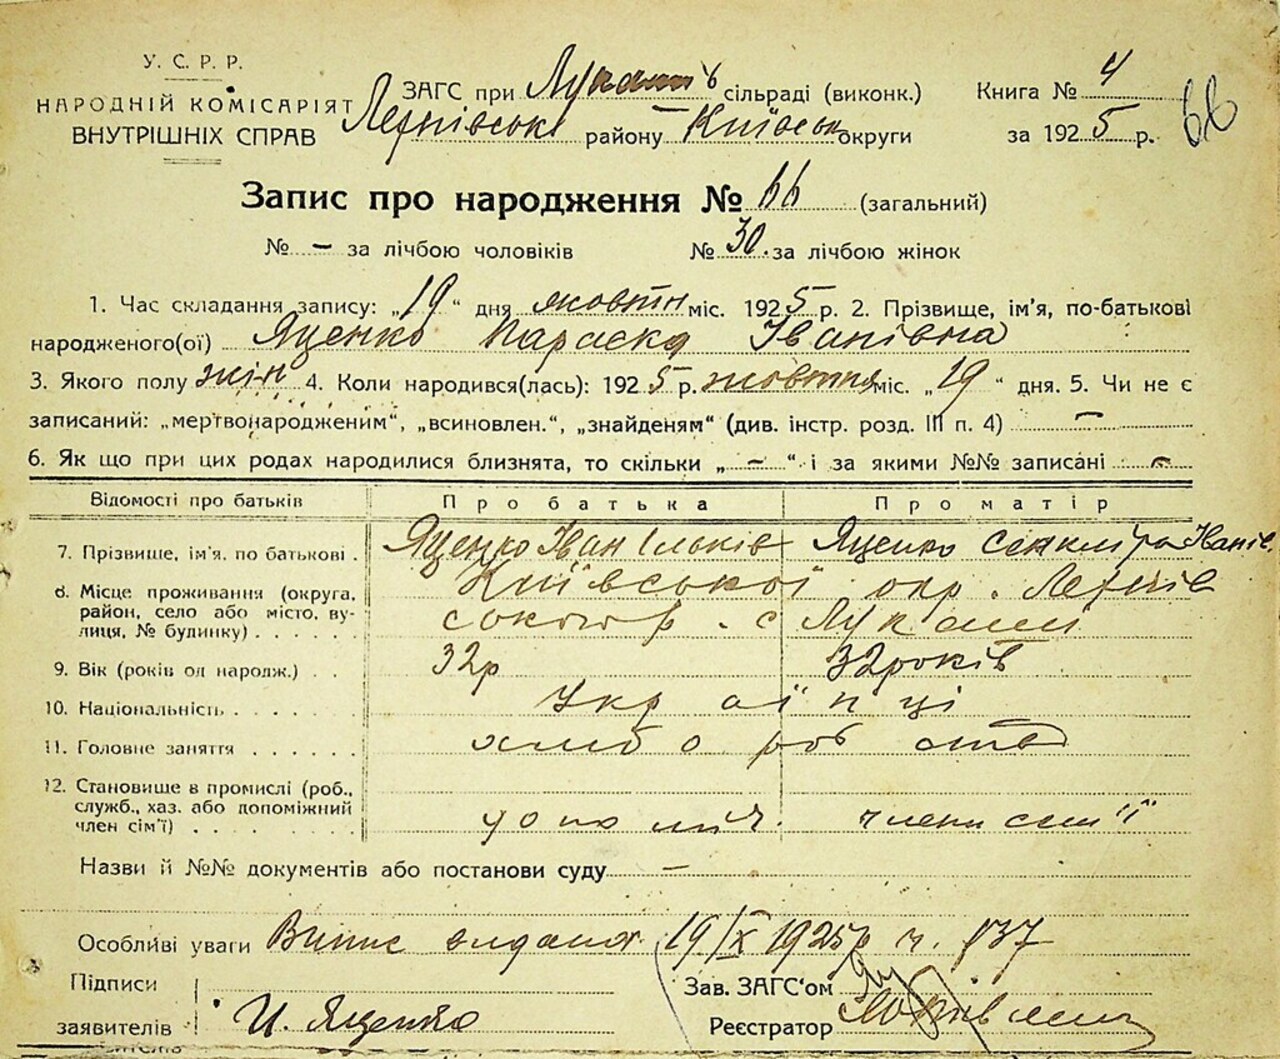 У. С. Р. Р.
НАРОДНІЙ КОМІСАРІЯТ
ВНУТРІШНІХ СПРАВ
ЗАГС при сільраді (виконк.)
району Київськ округи
Книга № 4
за 1925 р.
66
Запис про народження № 66 (загальний)
№ – за лічбою чоловіків № 30. за лічбою жінок
1. Час складання запису: „19“ дня жовтн міс. 1925 р. 2. Прізвище, ім'я, по-батькові
народженого(ої) Яценко Параска Іванівна
3. Якого полу жін 4. Коли народився(лась): 1925 р. жовтня міс. „19“ дня. 5. Чи не є
записаний: „мертвонародженим“, „всиновлен.“, „знайденям“ (див. інстр. розд. III п. 4) –
6. Як що при цих родах народилися близнята, то скільки „ – “ і за якими №№ записані –
Відомості про батьків Про батька Про матір
7. Прізвище, ім'я, по батькові . Яценко Іван Ільків Яценко Іванів.
8. Місце проживання (округа, Київської окр.
район, село або місто, ву- с
лиця, № будинку) . . . . . .
9. Вік (років од народж.) . . 32р 32років
10. Національність . . . . . . Українці
11. Головне заняття . . . . . . хліборобство
12. Становище в промислі (роб.,
служб., хаз. або допоміжний
член сім'ї) . . . . . . . . члени сем'ї
Назви й №№ документів або постанови суду –
Особливі уваги Випис видана 19/X 1925р ч. 837
Підписи
заявителів И. Яценко
Зав. ЗАГС'ом
Реєстратор